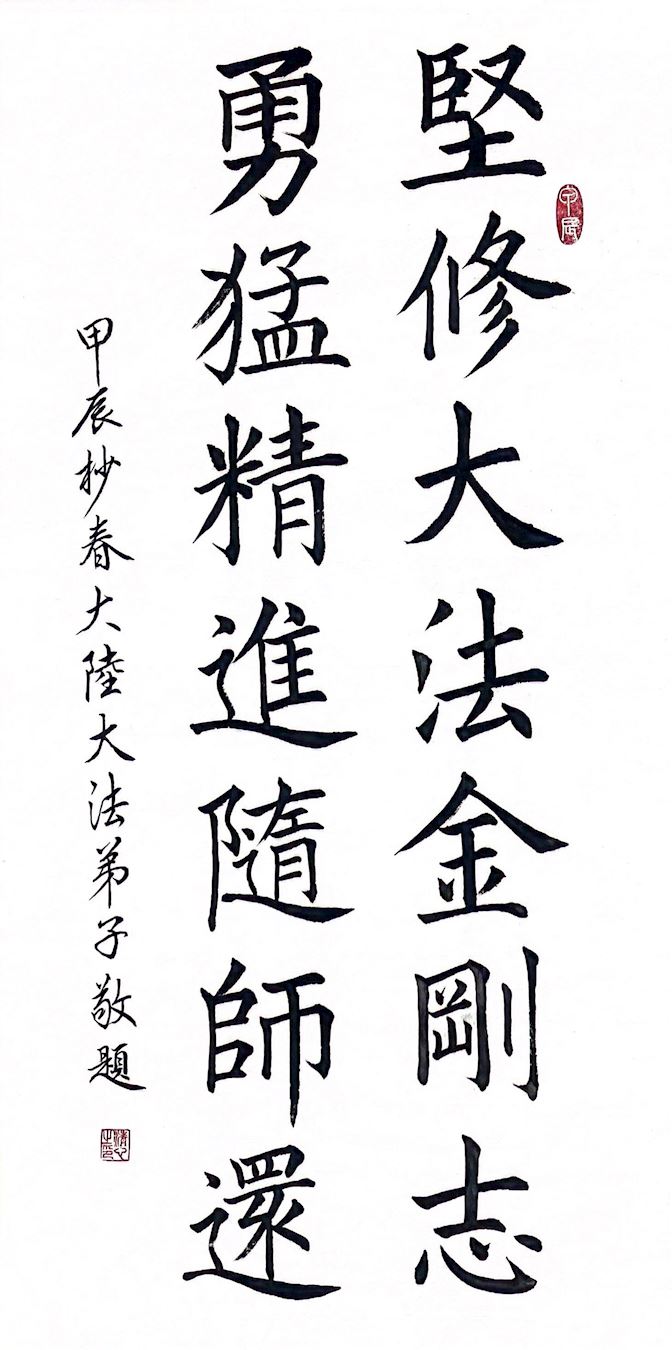 堅修大法金剛志
勇猛精進隨師還
甲辰杪春大陸大法弟子敬題
甲辰